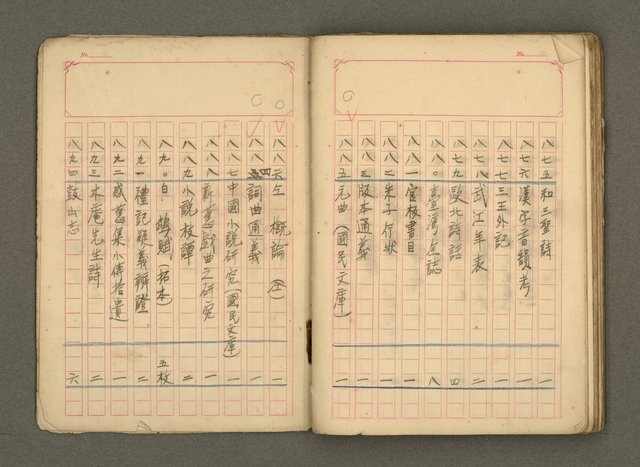 No.
八七五 和三聖詩 一
八七六 漢字音韻考 一
八七七 三王外記 一
八七八 武江年表 二
八七九 甌北詩話 四
八八〇 臺灣通志 八
八八一 官板書目 一
八八二 朱子行狀 一
八八三 版本通義 一
八八五 元曲(國民文庫) 一
No.
八八六 概論(全) 一
八八四 詞曲通義 一
八八七 中國小說研究(國民文庫) 一
八八八 新舊戲曲之研究 一
八八九 小說枝譚 二
八九〇 白 鵡賦(拓本) 五枚
八九一 禮記疑義辨證 二
八九二 感舊集小傳拾遺 一
八九三 木庵先生詩 二
八九四 鼓山志 六